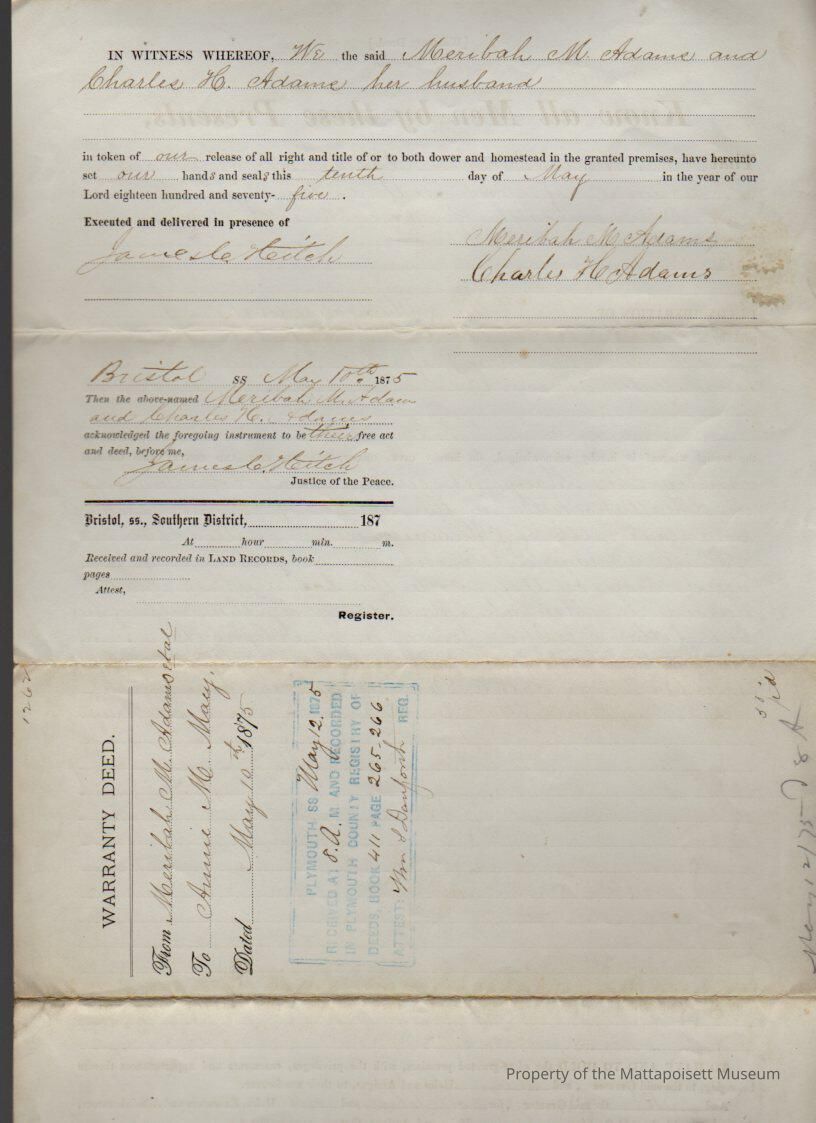 IN WITNESS WHEREOF, We the said Meribah M. Adams and
Charles H. Adams her husband
in token of our release of all right and title of or to both dower and homestead in the granted premises, have hereunto
set our hands and seals this tenth day of May in the year of our
Lord eighteen hundred and seventy- five .
Executed and delivered in presence of
Meribah M Adams
James C. Hitch
Charles H Adams
Bristol SS May 10th 1875
Then the above-named Meribah M. Adams
and Charles H. Adams
acknowledged the foregoing instrument to be their free act
and deed, before me,
James C. Hitch
Justice of the Peace.
Bristol, ss., Southern District, 187
At hour min. m.
Received and recorded in LAND RECORDS, book
pages
Attest,
Register.
1262
WARRANTY DEED.
From Meribah M. Adams et al
To Annie M. Macy.
Dated May 10th 1875
PLYMOUTH, SS May 12. 1875
RECEIVED AT 8. A. M. AND RECORDED
IN PLYMOUTH COUNTY REGISTRY OF
DEEDS, BOOK 411 PAGE 265-266
ATTEST: Wm S Danforth REG.
May 12/75
Property of the Mattapoisett Museum